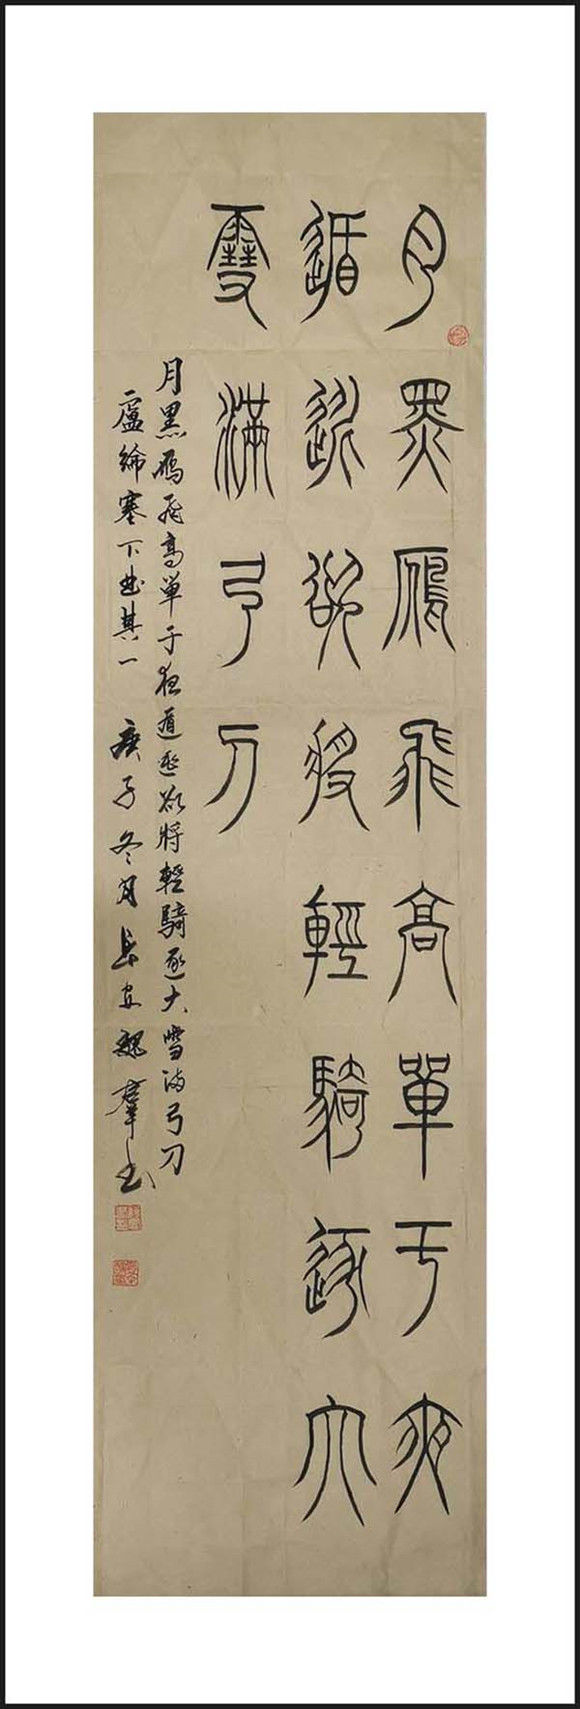 月黑鴈飛高單于夜
遁逃欲將輕騎逐大
雪滿弓刀
月黑鴈飛高單于夜遁逃欲將輕騎逐大雪满弓刀
盧綸塞下曲其一 庚子冬月長安魏羣书